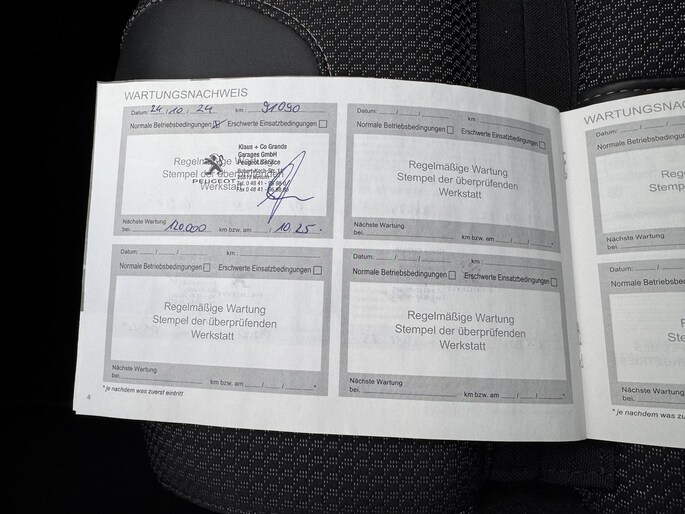 WARTUNGSNACHWEIS
Datum: 24 / 10 / 24 km : 91090
Normale Betriebsbedingungen Erschwerte Einsatzbedingungen
Regelmäßige Wartung
Stempel der überprüfenden
Werkstatt
Klaus + Co Grands
Garages GmbH
Peugeot Service
PEUGEOT
Nächste Wartung
bei 120.000 km bzw. am 10.25.
Datum: / / km :
Normale Betriebsbedingungen Erschwerte Einsatzbedingungen
Regelmäßige Wartung
Stempel der überprüfenden
Werkstatt
Nächste Wartung
bei km bzw. am / / *
Datum: / / km :
Normale Betriebsbedingungen Erschwerte Einsatzbedingungen
Regelmäßige Wartung
Stempel der überprüfenden
Werkstatt
Nächste Wartung
bei km bzw. am / / *
Datum: / / km :
Normale Betriebsbedingungen Erschwerte Einsatzbedingungen
Regelmäßige Wartung
Stempel der überprüfenden
Werkstatt
Nächste Wartung
bei km bzw. am / / *
* je nachdem was zuerst eintritt
4
WARTUNGSNAC
Datum: /
Normale Betriebsbedin
Regelm
Stempel
Nächste Wartung
bei
Datum: /
Normale Betriebsbed
Reg
Ste
Nächste Wartung
bei
* je nachdem was zu